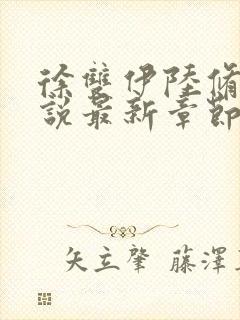 徐雙伊陸脩
說最新章節
矢立肇 藤澤